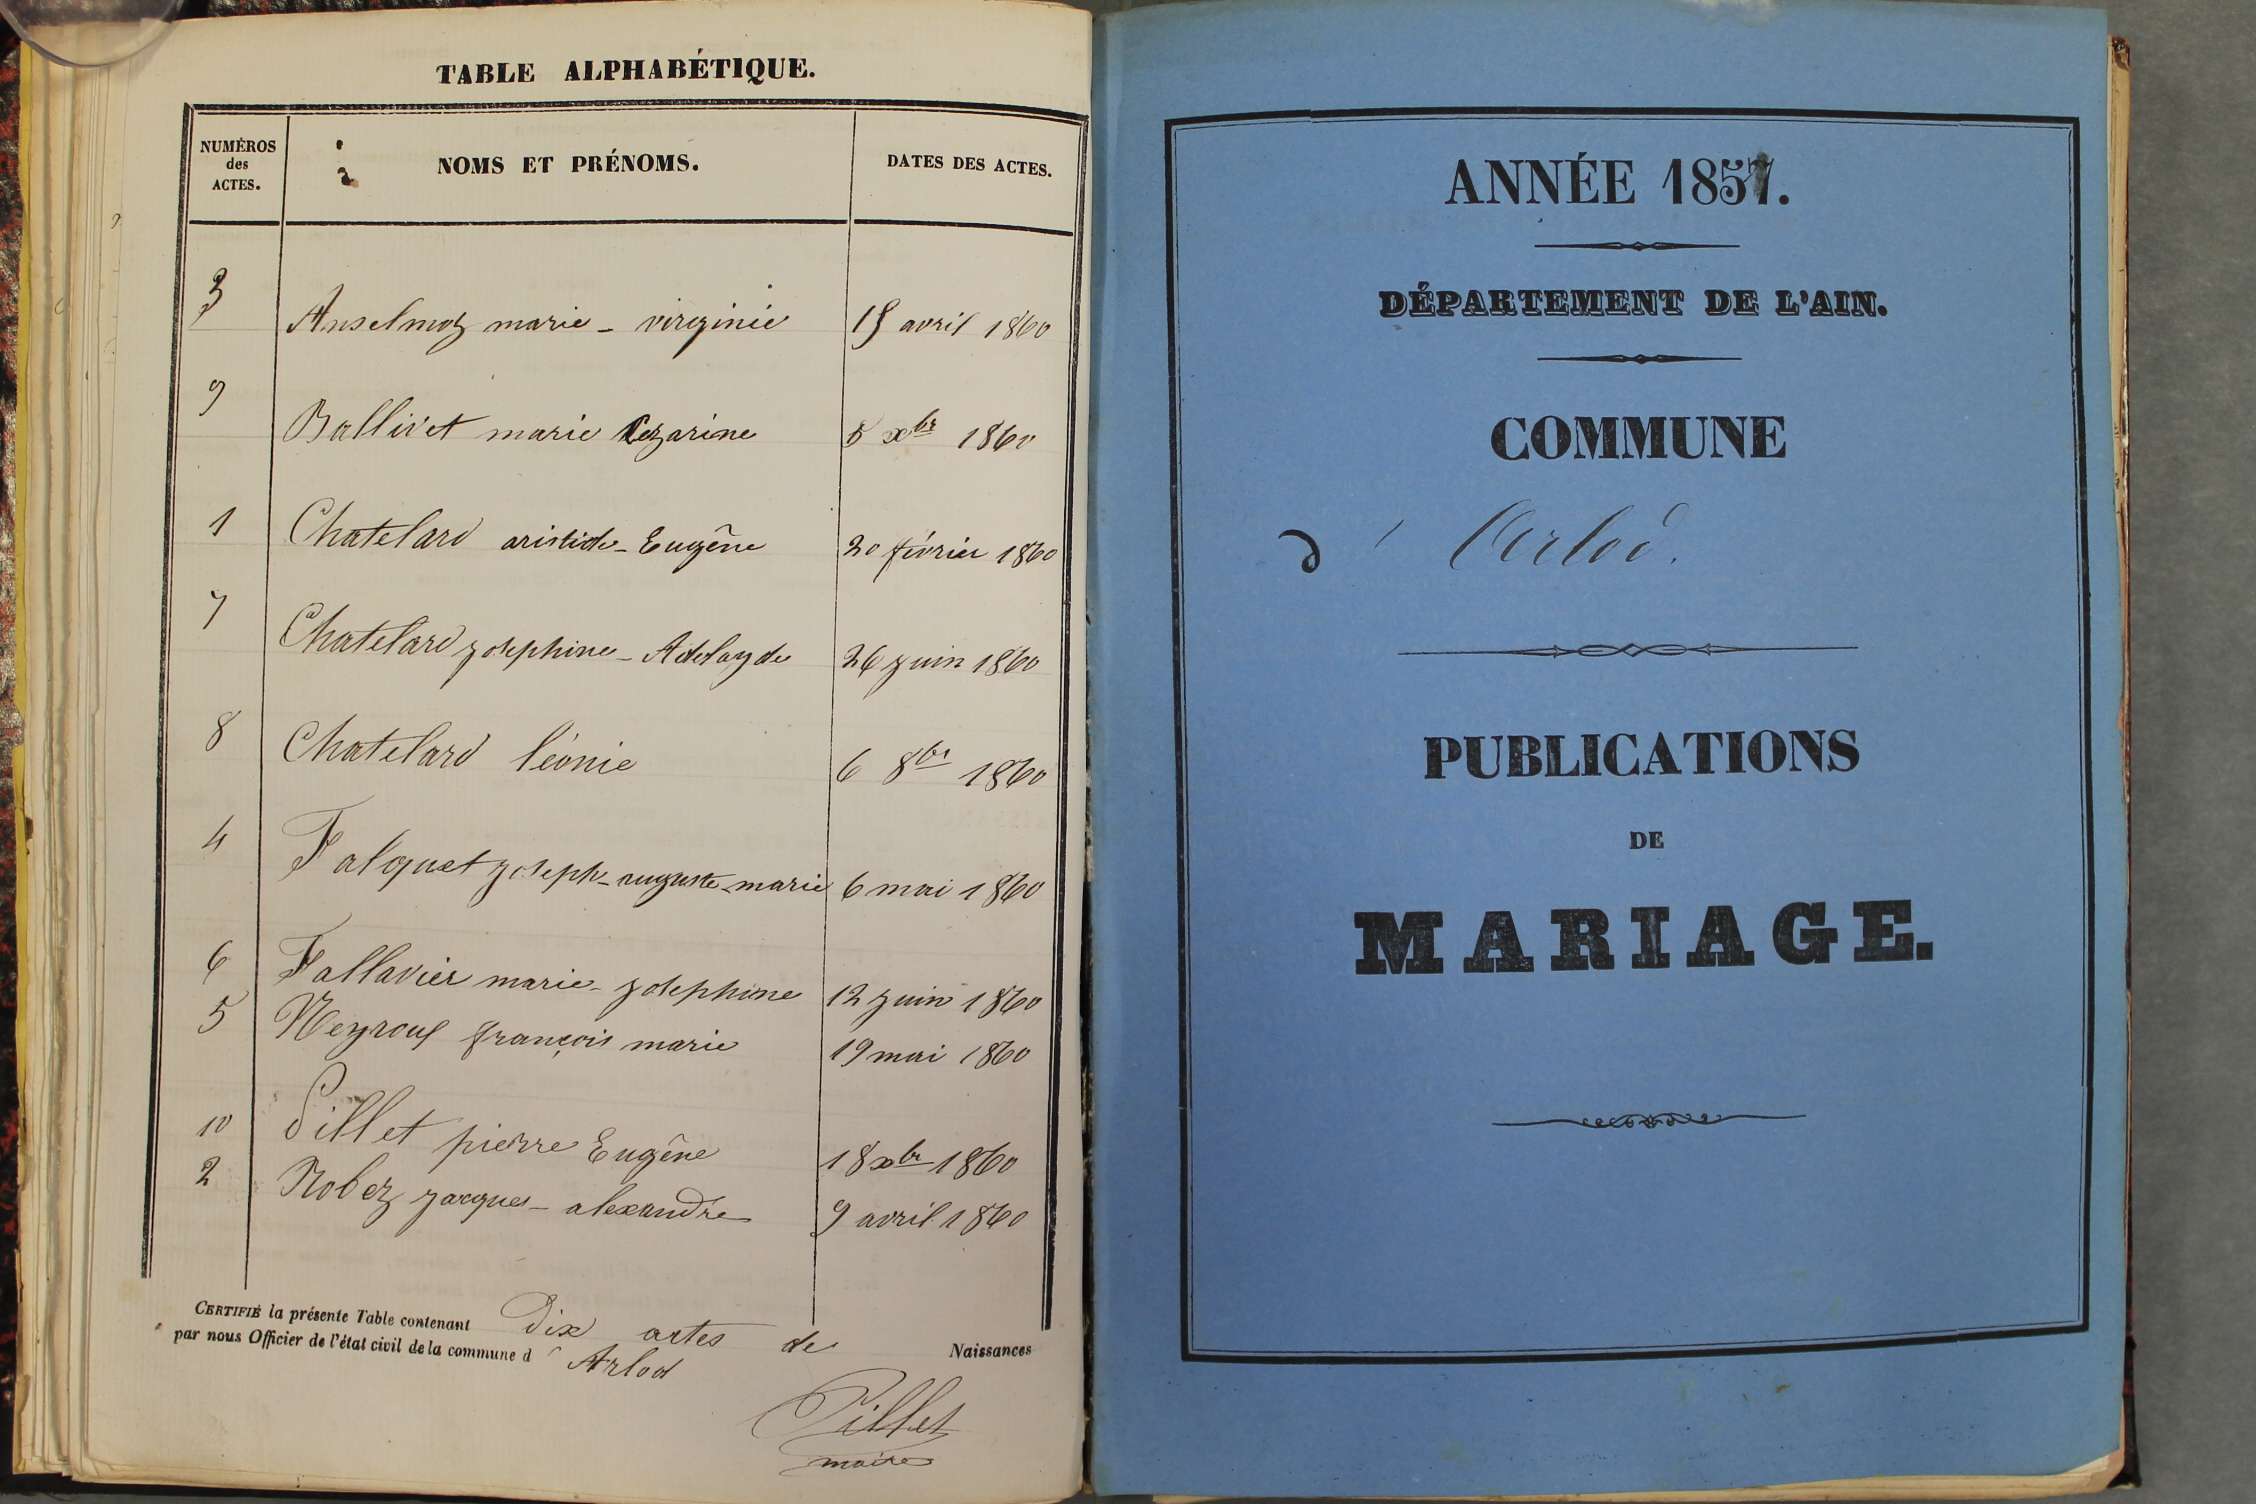 TABLE ALPHABÉTIQUE.
NUMÉROS des ACTES. NOMS ET PRÉNOMS. DATES DES ACTES.
3 Anselmoz marie - virginie 15 avril 1860
9 Ballivet marie Cezarine 5 xbr 1860
1 Chatelard aristide - Eugêne 20 février 1860
7 Chatelard josephine - Adelayde 26 juin 1860
8 Chatelard léonie 6 8br 1860
4 Falquet joseph - auguste - marie 6 mai 1860
6 Fallavier marie - josephine 12 juin 1860
5 Neyroup françois marie 19 mai 1860
10 Pillet pierre Eugêne 18 xbr 1860
2 Robez jacques - alexandre 9 avril 1860
CERTIFIÉ la présente Table contenant Dix actes de Naissances
par nous Officier de l'état civil de la commune d' Arlod
Pillet
maire
ANNÉE 1857.
DÉPARTEMENT DE L'AIN.
COMMUNE
d' Arlod.
PUBLICATIONS
DE
MARIAGE.